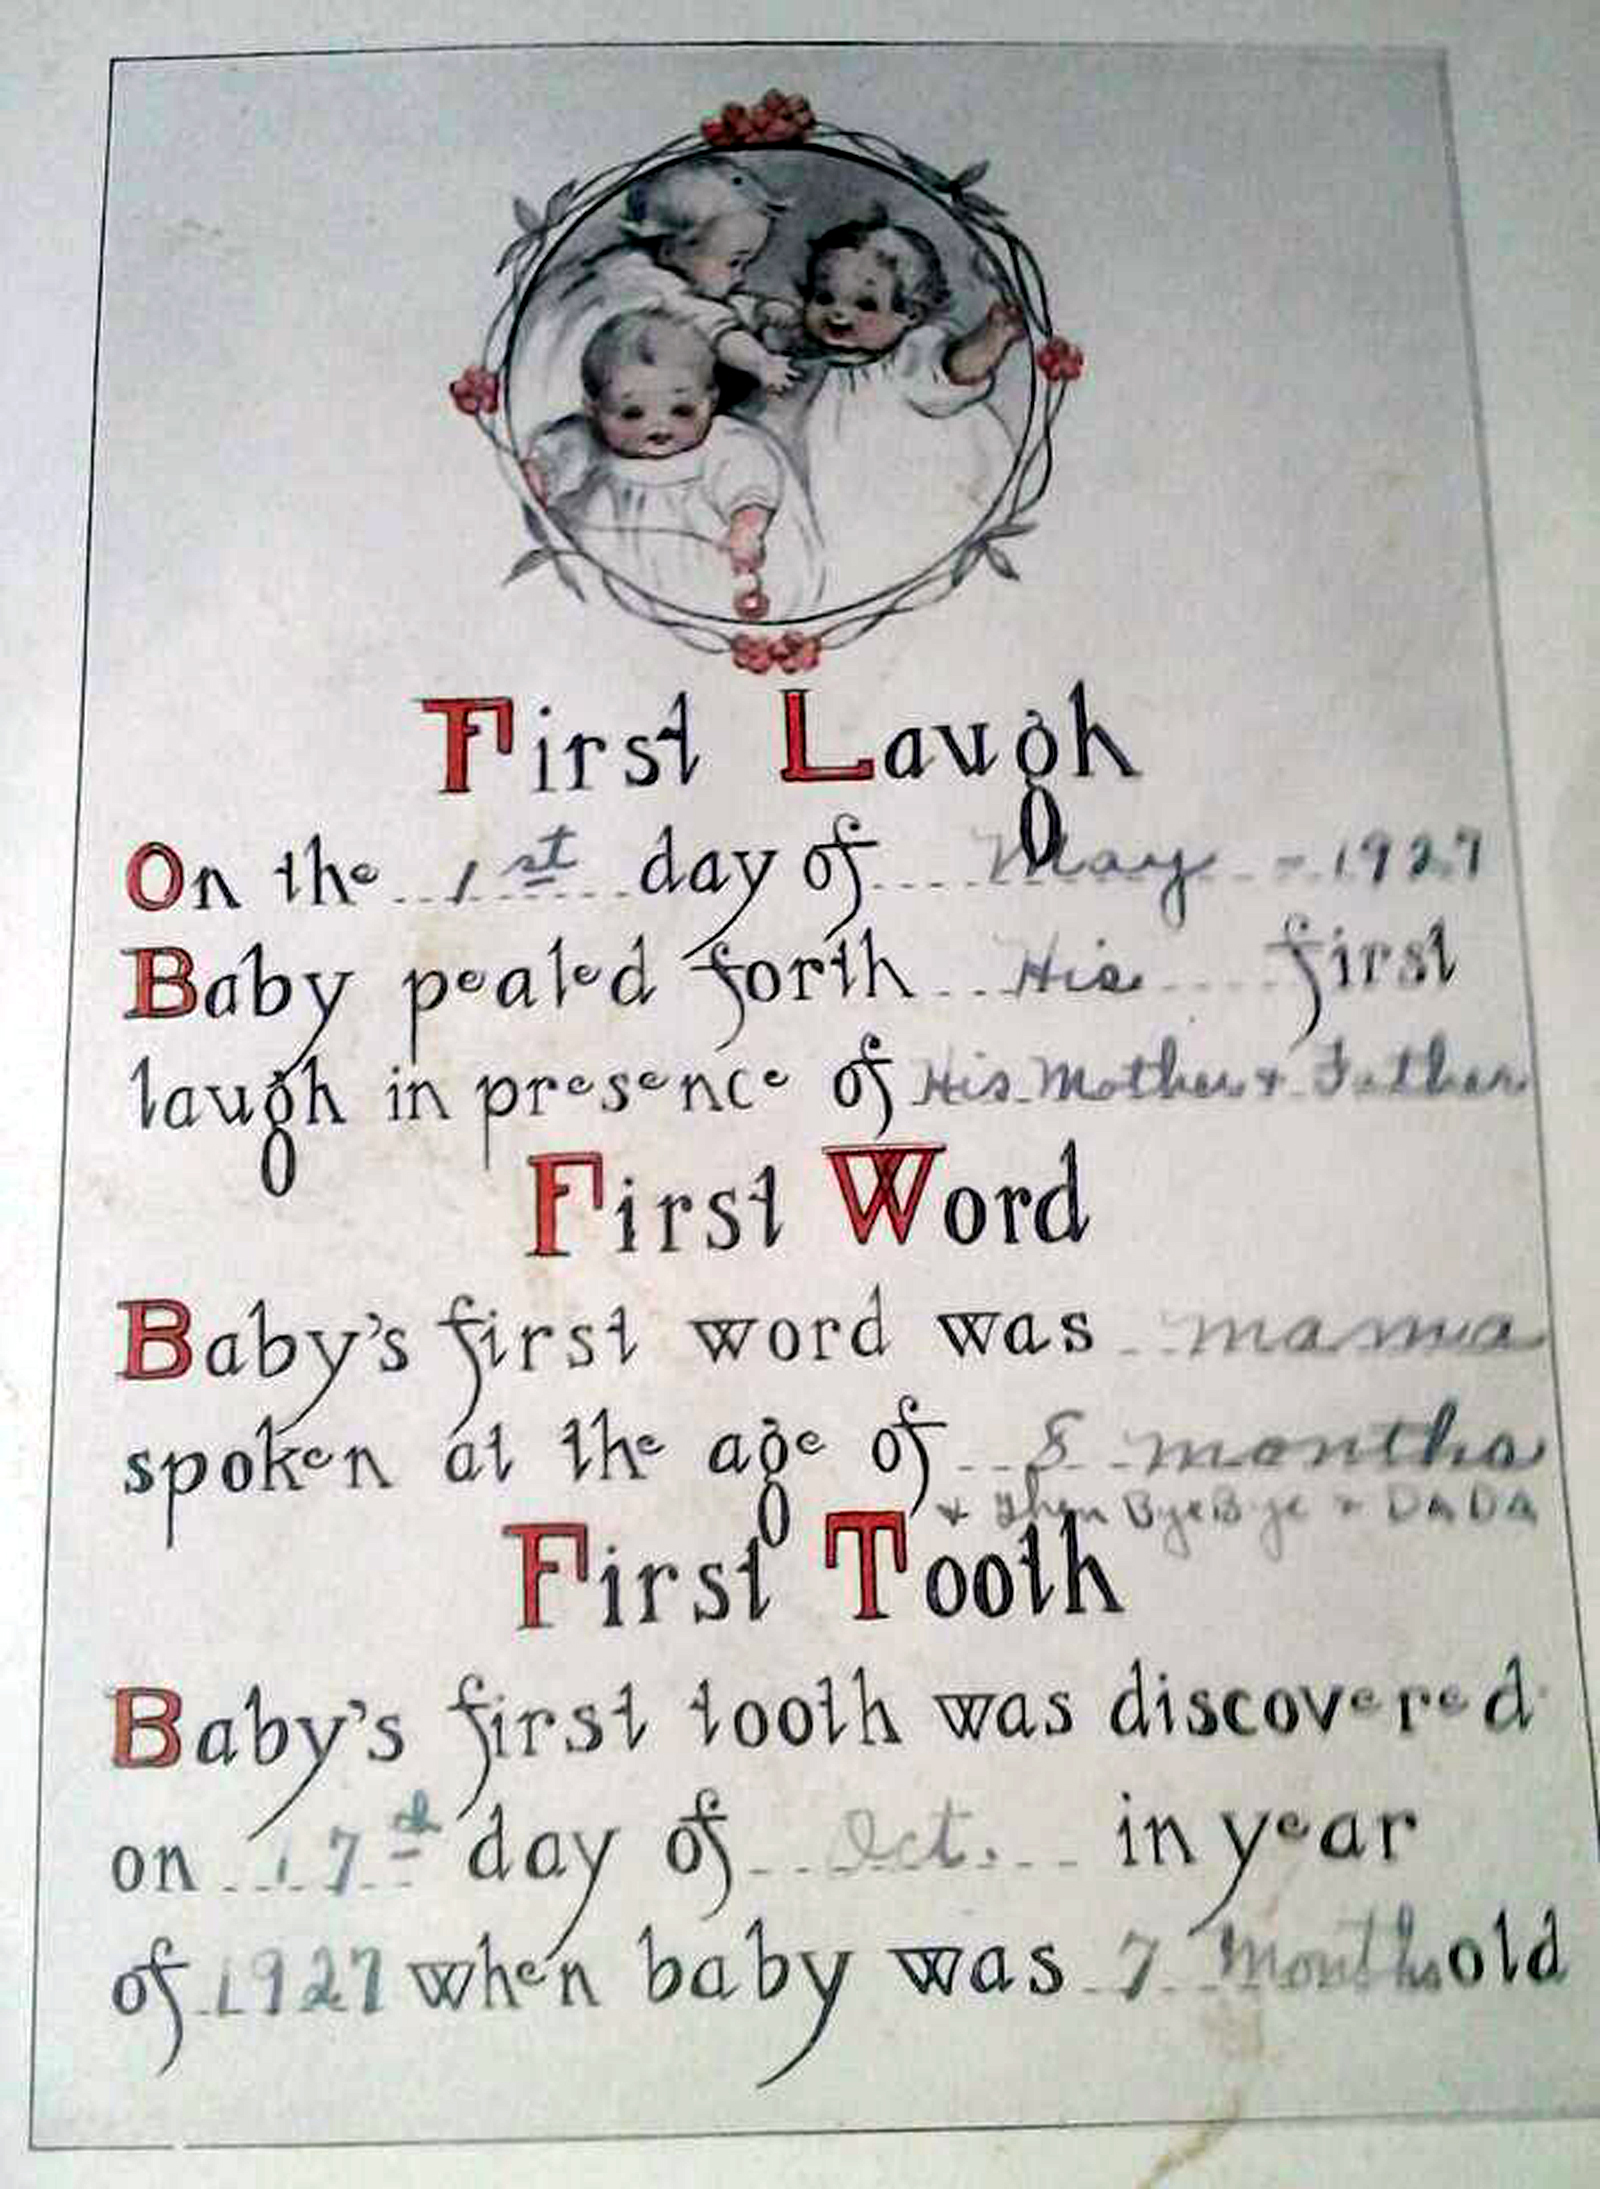 First Laugh
On the 1st day of May - 1927
Baby pealed forth His first
laugh in presence of His Mother & Father
First Word
Baby's first word was mama
spoken at the age of 8 months
& then Bye Bye & DADA
First Tooth
Baby's first tooth was discovered
on 17th day of Oct. in year
of 1927 when baby was 7 Months old